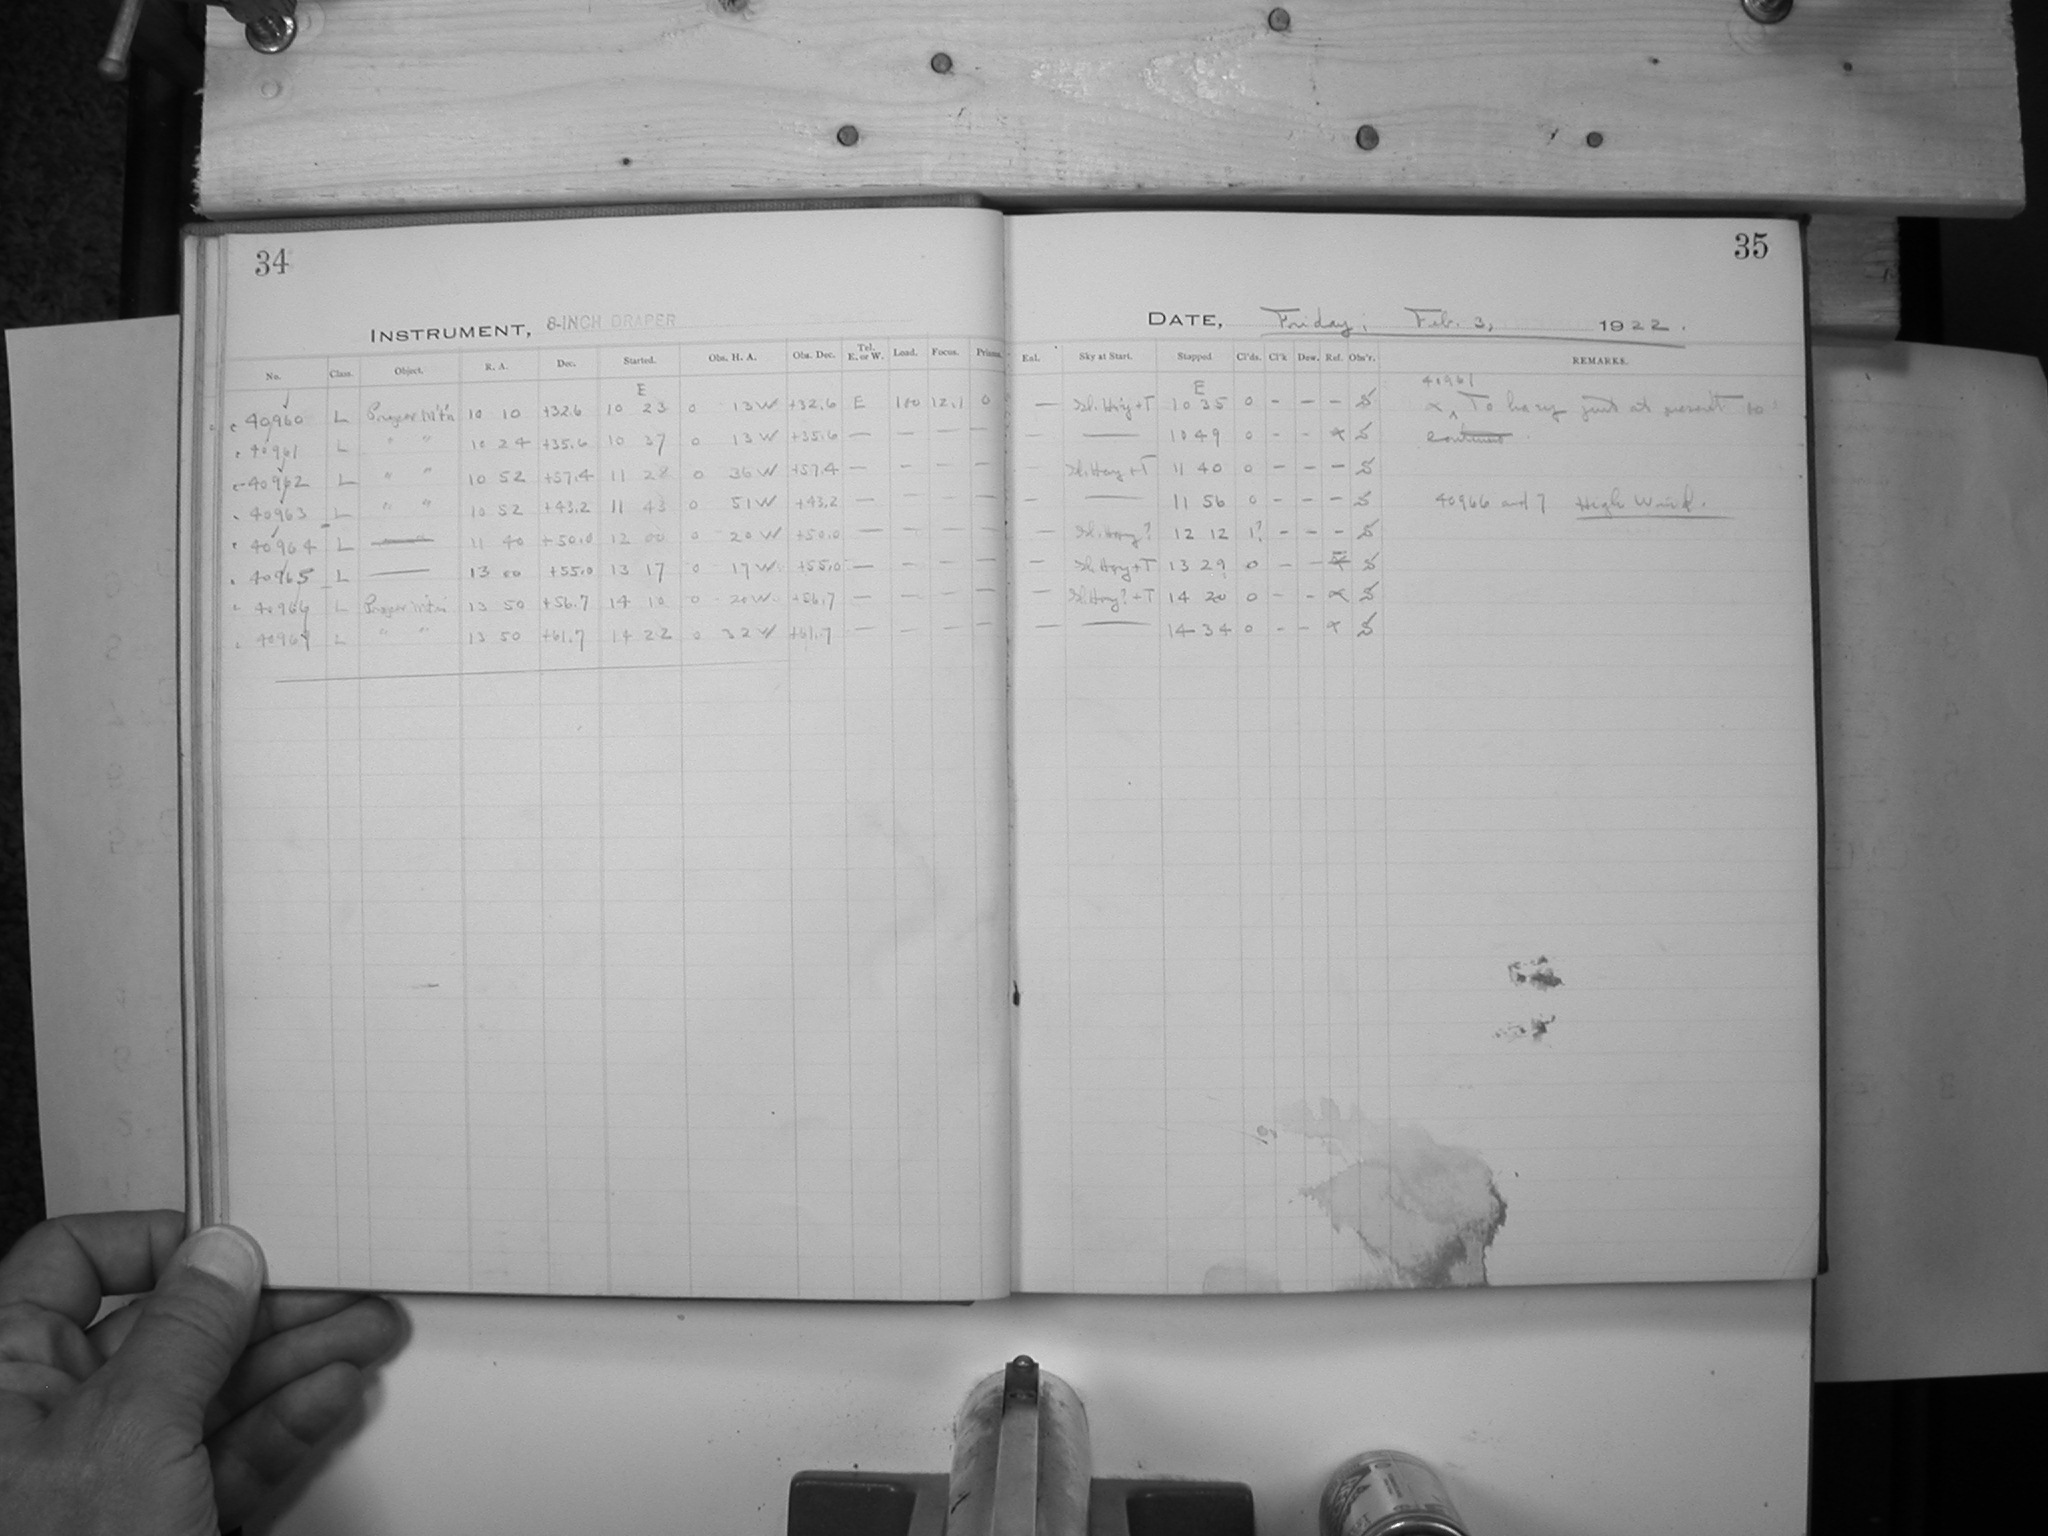 34
INSTRUMENT, 8-INCH DRAPER
No. Class. Object. R. A. Dec. Started. Obs. H. A. Obs. Dec. Tel. E. or W. Load. Focus. Prisms.
E
40960 L Proper M't'n 10 10 +32.6 10 23 0 13 W +32.6 E 180 12.1 0
40961 L " " 10 24 +35.6 10 37 0 13 W +35.6 — — — —
40962 L " " 10 52 +57.4 11 28 0 36 W +57.4 — — — —
40963 L " " 10 52 +43.2 11 43 0 51 W +43.2 — — — —
40964 L — 11 40 +50.0 12 00 0 20 W +50.0 — — — —
40965 L — 13 00 +55.0 13 17 0 17 W +55.0 — — — —
40966 L Proper M't'n 13 50 +56.7 14 10 0 20 W +56.7 — — — —
40967 L " " 13 50 +61.7 14 22 0 32 W +61.7 — — — —
35
DATE, Friday, Feb. 3, 1922.
Enl. Sky at Start. Stopped Cl'ds. Cl'k Dew. Ref. Obs'r. REMARKS.
E
— Sl. H'zy + T 10 35 0 – – – S
— — 10 49 0 – – x S
— Sl. Hazy + T 11 40 0 – – – S
— — 11 56 0 – – – S
— Sl. Hazy? 12 12 1? – – – S
— Sl. Hazy + T 13 29 0 – – S
— Sl. Hazy? + T 14 20 0 – – x S
— — 14 34 0 – – x S
40961
x To hazy just at present to
continue
40966 and 7 High Wind.